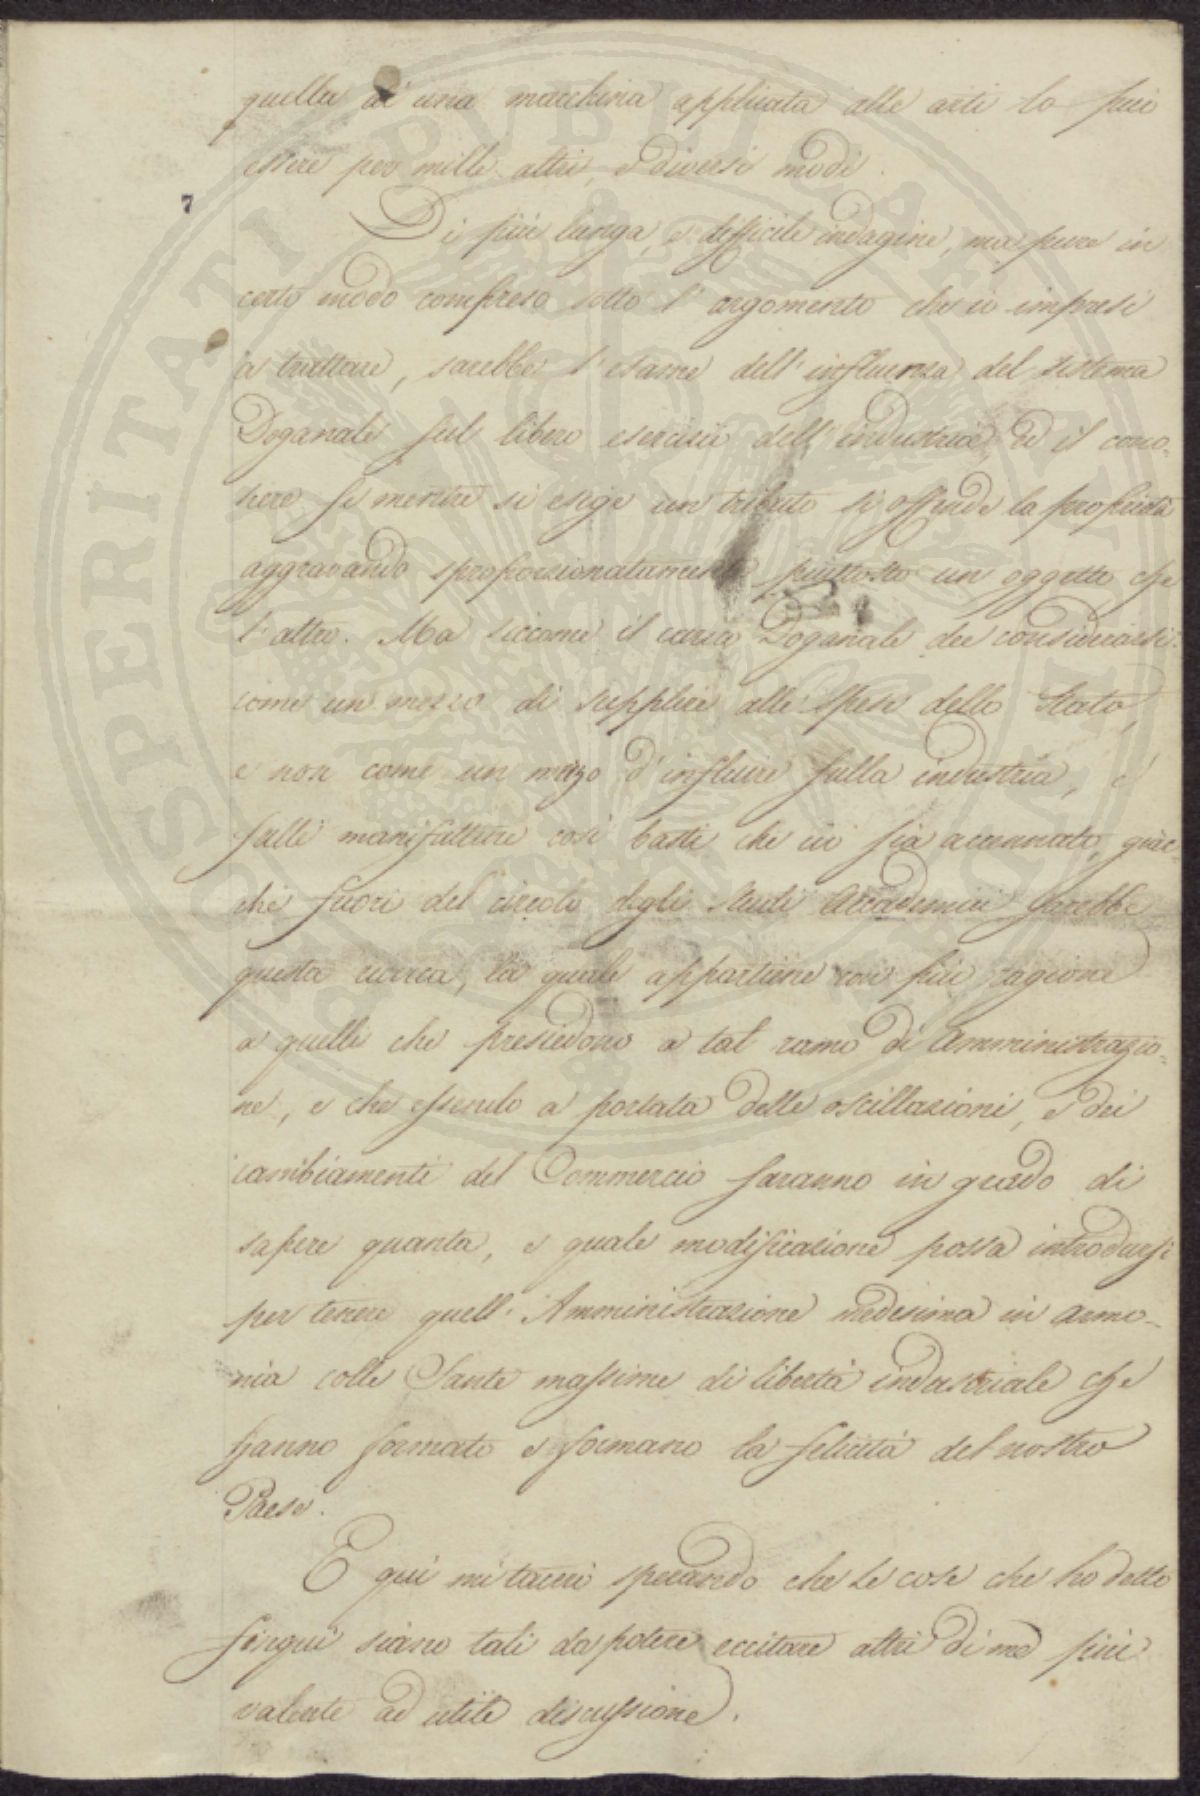 quella di una macchina applicata alle arti lo può
essere per mille altri, e diversi modi.
7
Di più lunga, e difficile indagine, ma pure in
certo modo compreso sotto l'argomento che io impresi
a trattare, sarebbe l'esame dell'influenza del sistema
Doganale sul libero esercizio dell'industria, ed il cono-
scere se mentre si esige un tributo si offende la proprietà
aggravando sproporzionatamente piuttosto un oggetto che
l'altro. Ma siccome il Doganale dee considerarsi
come un mezzo di supplire alle spese dello Stato,
e non come un mezzo d'influire sulla industria, e
sulle manifatture così basti che ciò sia accennato, giac-
chè fuori del circolo degli studi Accademici sarebbe
questa ricerca, la quale appartiene con più ragione
a quelli che presiedono a tal ramo di Amministrazio-
ne, e che essendo a portata delle oscillazioni, e dei
cambiamenti del Commercio saranno in grado di
sapere quanta, e quale modificazione possa introdursi
per tenere quell'Amministrazione medesima in armo-
nia colle Sante massime di libertà industriale che
hanno formato e formano la felicità del nostro
Paese.
E qui mi tacerò sperando che le cose che ho dette
finqui siano tali da potere eccitare altri di me più
valente ad utile discussione.
PROSPERITATI PUBLICAE